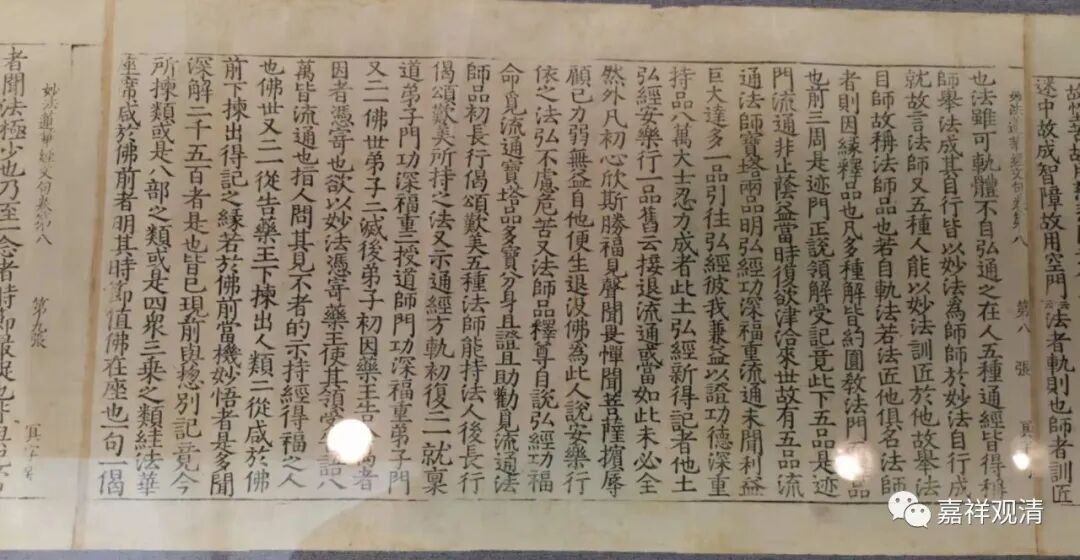 迷中故成智障故用空門云云法者軌則也師者訓匠
妙法蓮華經文句卷第八 第八 張
也法雖可軌體不自弘通之在人五種通經皆得稱
師舉法成其自行皆以妙法為師師於妙法自行成
就故言法師又五種人能以妙法訓匠於他故舉法
目師故稱法師品也若自軌法若法匠他俱名法師
者則因緣釋品也凡多種解皆約圓教法門品
也前三周是迹門正說領解受記竟此下五品是迹
門流通非止蔭益當時復欲津洽來世故有五品流
通法師寶塔兩品明弘經功深福重流通未聞利益
巨大達多一品引往弘經彼我兼益以證功德深重
持品八萬大士忍力成者此土弘經新得記者他土
弘經安樂行一品舊云接退流通或當如此未必全
然外凡初心欣斯勝福見聲聞畏憚聞菩薩擯辱
顧己力弱無益自他便生退沒佛為此人說安樂行
依之法弘不慮危苦又法師品釋尊自說弘經功福
命覓流通寶塔品多寶分身且證且助勸覓流通法
師品初長行偈頌歎美五種法師能持法人後長行
偈頌歎美所持之法又示通經方軌初復二一就稟
道弟子門功深福重二授道師門功深福重弟子門
又二一佛世弟子二滅後弟子初因藥王告八萬者
因者憑寄也欲以妙法憑寄藥王使其領受告語八
萬皆流通也指人問其見不者的示持經得福之人
也佛世又二一從告藥王下揀出人類二從咸於佛
前下揀出得記之緣若於佛前當機妙悟者是多聞
深解二千五百者是也皆已現前與揔別記竟今
所揀類或是八部之類或是四衆三乘之類法華
座常咸於佛前者明其時節值佛在座也一句一偈
妙法蓮華經文句卷第八 第九張
者聞法極少也乃至一念者時節最促也
嘉祥观清